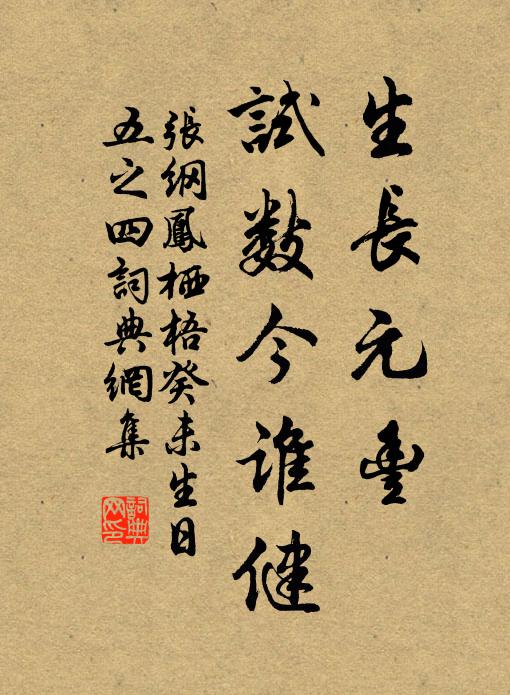 生長元豐
試數今誰健
張綱鳳栖梧癸未生日
五之四詞典網集
詞典
网印